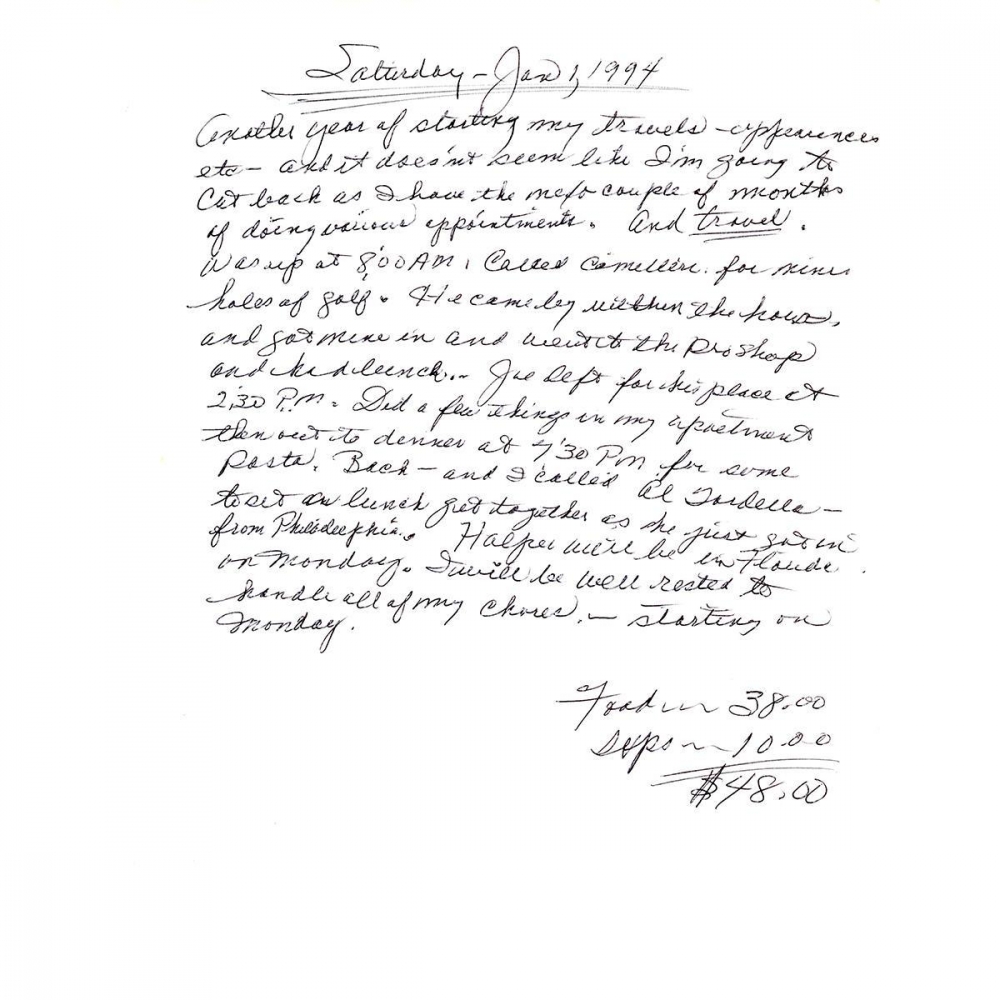 Saturday - Jan 1, 1994
Another year of starting my travels - appearances
etc - and it does'nt seem like I'm going to
Cut back as I have the next couple of months
of doing various appointments. And travel.
Was up at 8:00 AM. Called Camilleri for nine
holes of golf. He came by within the hour,
and got nine in and went to the Pro Shop
and had lunch.. Joe left for his place at
2:30 P.M. Did a few things in my apartment
then out to dinner at 7:30 PM for some
Pasta. Back - and I called Al -
to set a lunch get together as he just got in
from Philadelphia. Halper will be in Florida
on Monday. I will be well rested to
handle all of my chores. - starting on
Monday.
Food 38.00
10.00
$48.00